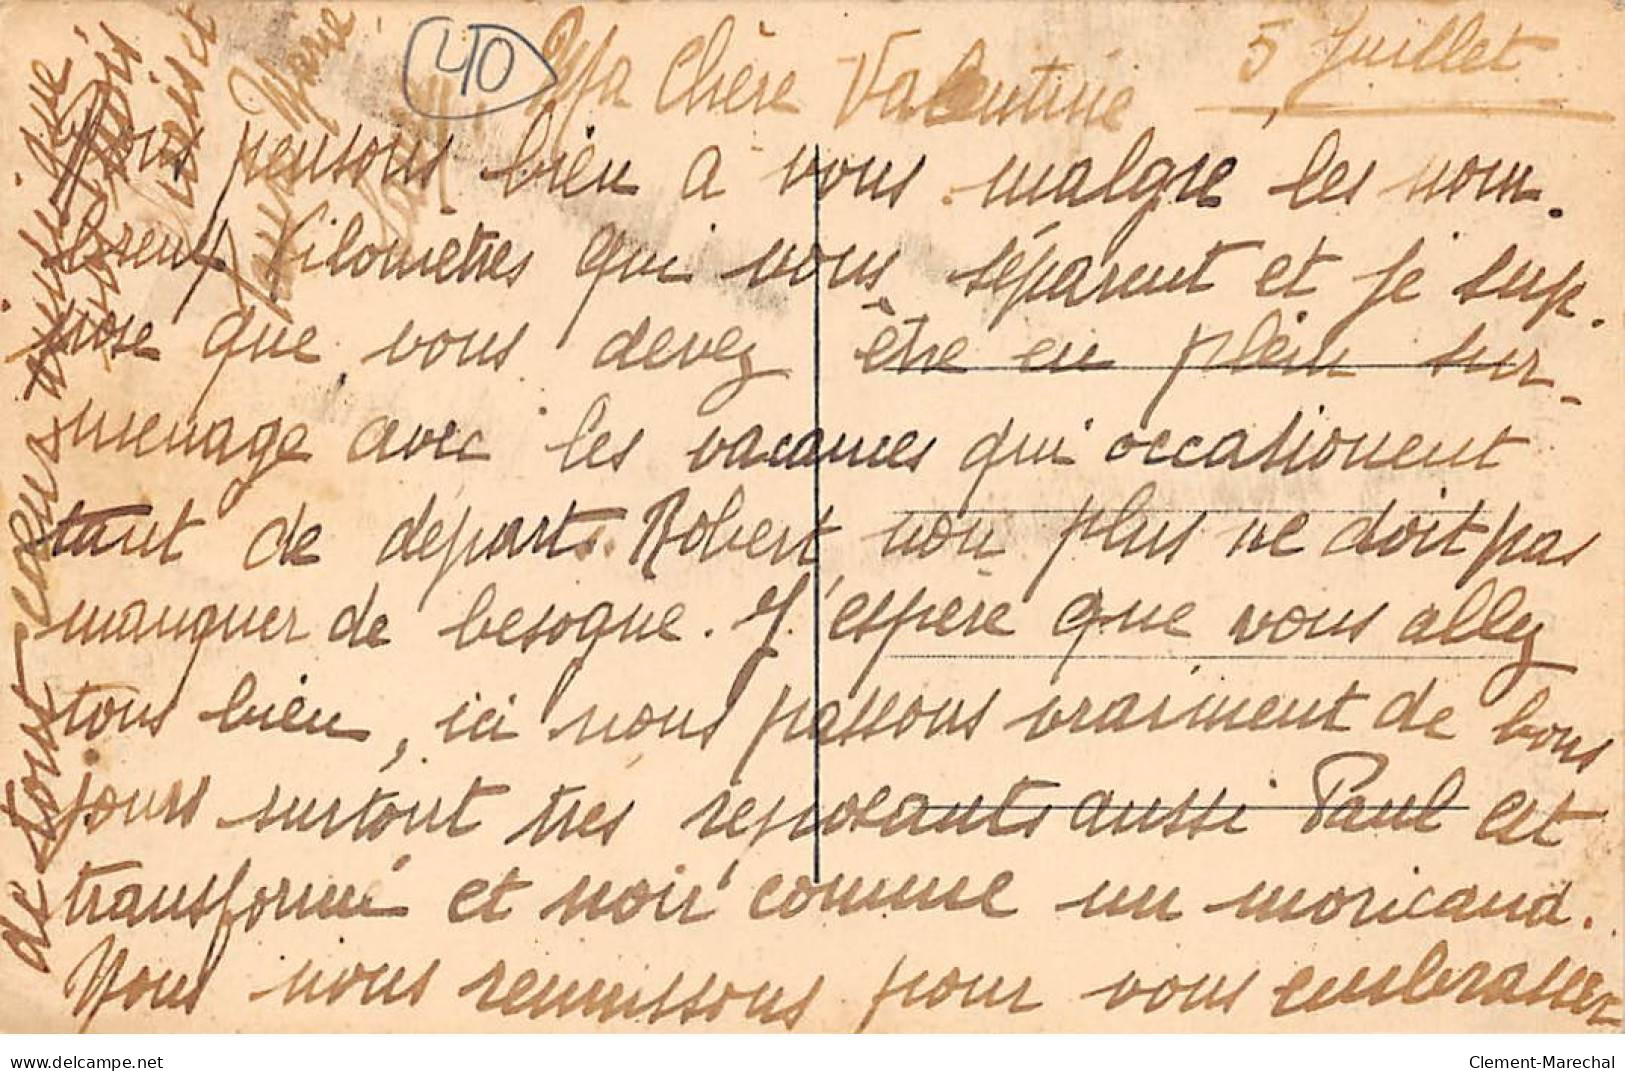 40
5 Juillet
Ma Chère Valentine
Nous pensons bien a vous malgre les nom-
breux kilomètres qui nous séparent et je sup-
pose que vous devez être en plein sur-
menage avec les vacances qui occasionent
tant de departs. Robert non plus ne doit pas
manquer de besogne. J'espère que vous allez
tous bien, ici nous passons vraiment de bons
jours surtout tres reposants aussi Paul est
transformé et noir comme un moricaud.
Nous nous reunissons pour vous embrasser
de tous
Marie
www.delcampe.net
Clement-Marechal